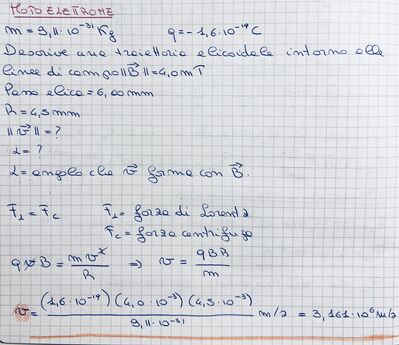 MOTO ELETTRONE
m = 9,11·10⁻³¹ Kg q = -1,6·10⁻¹⁹ C
Descrive una traiettoria elicoidale intorno alle
linee di campo ||B⃗|| = 4,0 mT
Passo elica = 6,00 mm
R = 4,5 mm
||v⃗|| = ?
α = ?
α = angolo che v⃗ forma con B⃗.
F⃗_L = F⃗_c F⃗_L = forza di Lorentz
F⃗_c = forza centrifuga
qvB = mv²/R ⇒ v = qBR/m
v = (1,6·10⁻¹⁹)(4,0·10⁻³)(4,5·10⁻³)/9,11·10⁻³¹ m/s = 3,161·10⁶ m/s